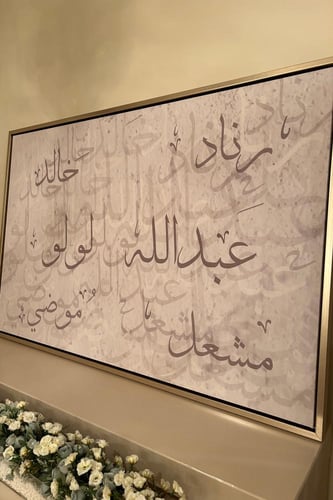 رناد خالد
عبدالله لولو
موضي
مشعل